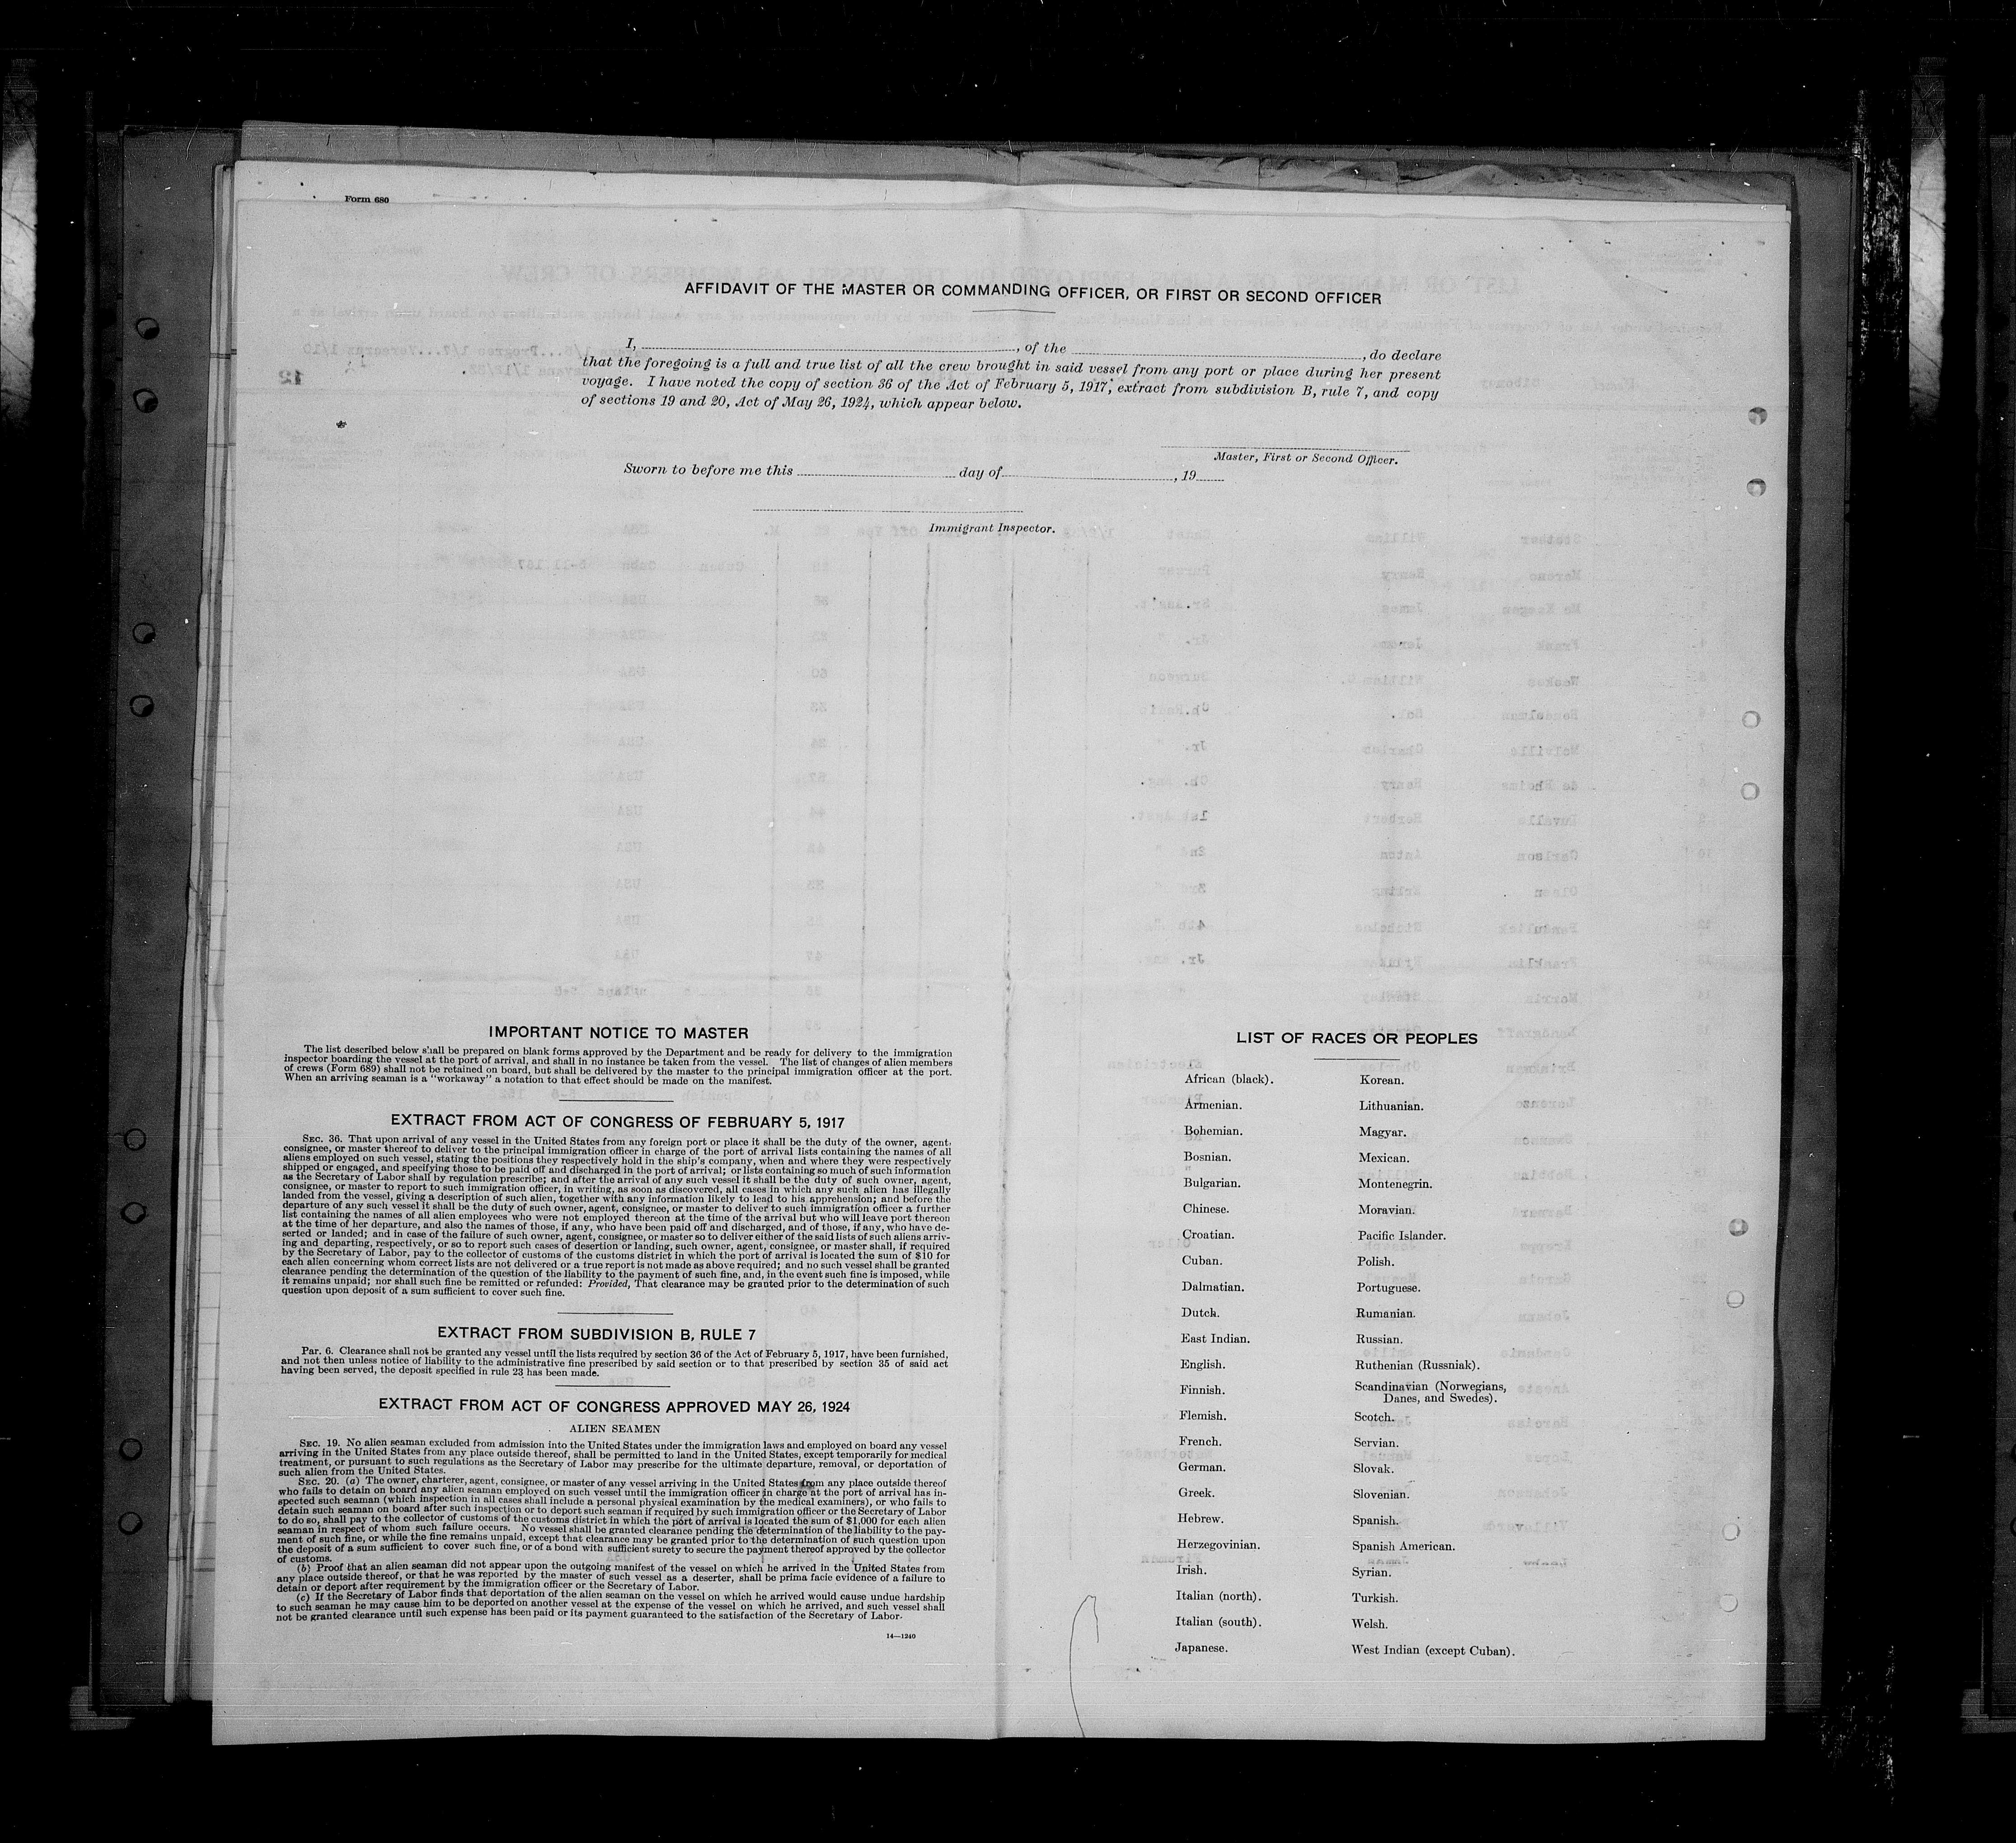 Form 680
AFFIDAVIT OF THE MASTER OR COMMANDING OFFICER, OR FIRST OR SECOND OFFICER
I, , of the , do declare
that the foregoing is a full and true list of all the crew brought in said vessel from any port or place during her present
voyage. I have noted the copy of section 36 of the Act of February 5, 1917, extract from subdivision B, rule 7, and copy
of sections 19 and 20, Act of May 26, 1924, which appear below.
Master, First or Second Officer.
Sworn to before me this day of , 19
Immigrant Inspector.
IMPORTANT NOTICE TO MASTER
The list described below shall be prepared on blank forms approved by the Department and be ready for delivery to the immigration
inspector boarding the vessel at the port of arrival, and shall in no instance be taken from the vessel. The list of changes of alien members
of crews (Form 689) shall not be retained on board, but shall be delivered by the master to the principal immigration officer at the port.
When an arriving seaman is a "workaway" a notation to that effect should be made on the manifest.
EXTRACT FROM ACT OF CONGRESS OF FEBRUARY 5, 1917
SEC. 36. That upon arrival of any vessel in the United States from any foreign port or place it shall be the duty of the owner, agent,
consignee, or master thereof to deliver to the principal immigration officer in charge of the port of arrival lists containing the names of all
aliens employed on such vessel, stating the positions they respectively hold in the ship's company, when and where they were respectively
shipped or engaged, and specifying those to be paid off and discharged in the port of arrival; or lists containing so much of such information
as the Secretary of Labor shall by regulation prescribe; and after the arrival of any such vessel it shall be the duty of such owner, agent,
consignee, or master to report to such immigration officer, in writing, as soon as discovered, all cases in which any such alien has illegally
landed from the vessel, giving a description of such alien, together with any information likely to lead to his apprehension; and before the
departure of any such vessel it shall be the duty of such owner, agent, consignee, or master to deliver to such immigration officer a further
list containing the names of all alien employees who were not employed thereon at the time of the arrival but who will leave port thereon
at the time of her departure, and also the names of those, if any, who have been paid off and discharged, and of those, if any, who have de-
serted or landed; and in case of the failure of such owner, agent, consignee, or master so to deliver either of the said lists of such aliens arriv-
ing and departing, respectively, or so to report such cases of desertion or landing, such owner, agent, consignee, or master shall, if required
by the Secretary of Labor, pay to the collector of customs of the customs district in which the port of arrival is located the sum of $10 for
each alien concerning whom correct lists are not delivered or a true report is not made as above required; and no such vessel shall be granted
clearance pending the determination of the question of the liability to the payment of such fine, and, in the event such fine is imposed, while
it remains unpaid; nor shall such fine be remitted or refunded: Provided, That clearance may be granted prior to the determination of such
question upon deposit of a sum sufficient to cover such fine.
EXTRACT FROM SUBDIVISION B, RULE 7
Par. 6. Clearance shall not be granted any vessel until the lists required by section 36 of the Act of February 5, 1917, have been furnished,
and not then unless notice of liability to the administrative fine prescribed by said section or to that prescribed by section 35 of said act
having been served, the deposit specified in rule 23 has been made.
EXTRACT FROM ACT OF CONGRESS APPROVED MAY 26, 1924
ALIEN SEAMEN
SEC. 19. No alien seaman excluded from admission into the United States under the immigration laws and employed on board any vessel
arriving in the United States from any place outside thereof, shall be permitted to land in the United States, except temporarily for medical
treatment, or pursuant to such regulations as the Secretary of Labor may prescribe for the ultimate departure, removal, or deportation of
such alien from the United States.
SEC. 20. (a) The owner, charterer, agent, consignee, or master of any vessel arriving in the United States from any place outside thereof
who fails to detain on board any alien seaman employed on such vessel until the immigration officer in charge at the port of arrival has in-
spected such seaman (which inspection in all cases shall include a personal physical examination by the medical examiners), or who fails to
detain such seaman on board after such inspection or to deport such seaman if required by such immigration officer or the Secretary of Labor
to do so, shall pay to the collector of customs of the customs district in which the port of arrival is located the sum of $1,000 for each alien
seaman in respect of whom such failure occurs. No vessel shall be granted clearance pending the determination of the liability to the pay-
ment of such fine, or while the fine remains unpaid, except that clearance may be granted prior to the determination of such question upon
the deposit of a sum sufficient to cover such fine, or of a bond with sufficient surety to secure the payment thereof approved by the collector
of customs.
(b) Proof that an alien seaman did not appear upon the outgoing manifest of the vessel on which he arrived in the United States from
any place outside thereof, or that he was reported by the master of such vessel as a deserter, shall be prima facie evidence of a failure to
detain or deport after requirement by the immigration officer or the Secretary of Labor.
(c) If the Secretary of Labor finds that deportation of the alien seaman on the vessel on which he arrived would cause undue hardship
to such seaman he may cause him to be deported on another vessel at the expense of the vessel on which he arrived, and such vessel shall
not be granted clearance until such expense has been paid or its payment guaranteed to the satisfaction of the Secretary of Labor.
14—1240
LIST OF RACES OR PEOPLES
African (black).
Armenian.
Bohemian.
Bosnian.
Bulgarian.
Chinese.
Croatian.
Cuban.
Dalmatian.
Dutch.
East Indian.
English.
Finnish.
Flemish.
French.
German.
Greek.
Hebrew.
Herzegovinian.
Irish.
Italian (north).
Italian (south).
Japanese.
Korean.
Lithuanian.
Magyar.
Mexican.
Montenegrin.
Moravian.
Pacific Islander.
Polish.
Portuguese.
Rumanian.
Russian.
Ruthenian (Russniak).
Scandinavian (Norwegians,
Danes, and Swedes).
Scotch.
Servian.
Slovak.
Slovenian.
Spanish.
Spanish American.
Syrian.
Turkish.
Welsh.
West Indian (except Cuban).